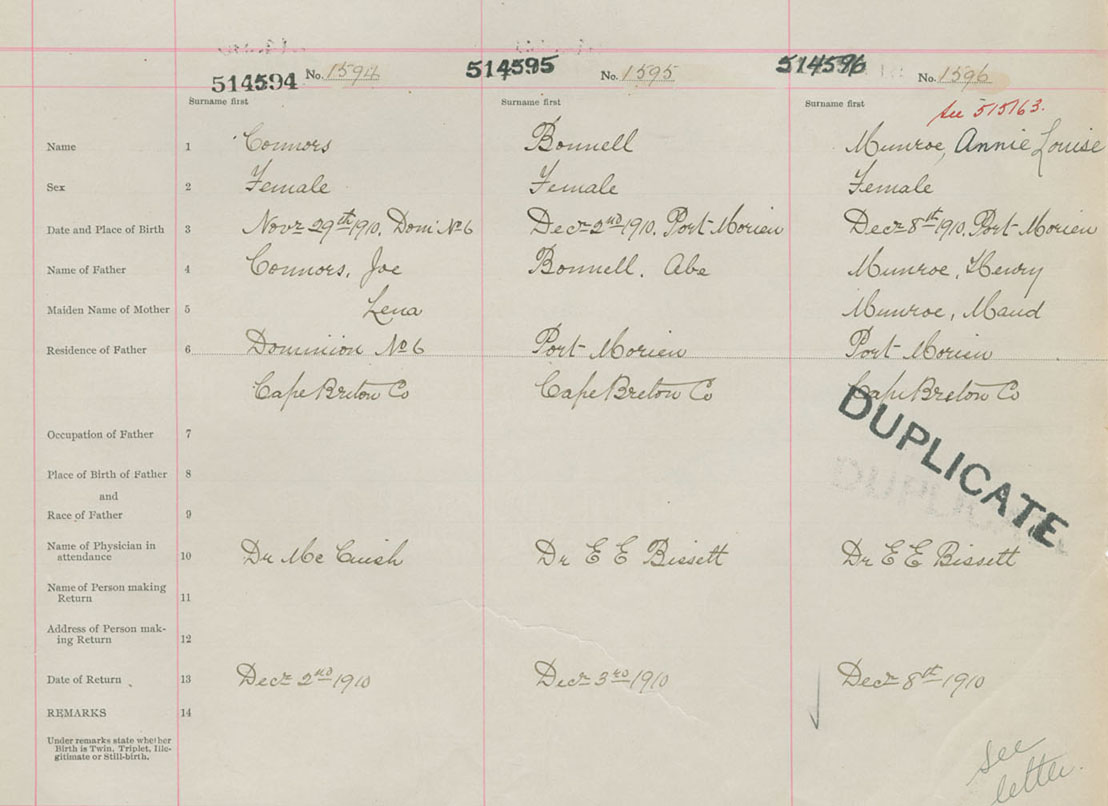 514594 No. 1594 514595 No. 1595 514596 No. 1596
Surname first Surname first Surname first See 515163.
Name 1 Connors Bonnell Munroe, Annie Louise
Sex 2 Female Female Female
Date and Place of Birth 3 Novr 29th 1910, Dom: No 6 Decr 2nd 1910. Port Morien Decr 8th 1910. Port Morien
Name of Father 4 Connors, Joe Bonnell, Abe Munroe, Henry
Maiden Name of Mother 5 Lena Munroe, Maud
Residence of Father 6 Dominion No 6 Port Morien Port Morien
Cape Breton Co Cape Breton Co Cape Breton Co
DUPLICATE
DUPLICATE
Occupation of Father 7
Place of Birth of Father 8
and
Race of Father 9
Name of Physician in
attendance 10 Dr Mc Cuish Dr E E Bissett Dr E E Bissett
Name of Person making
Return 11
Address of Person mak-
ing Return 12
Date of Return 13 Decr 2nd 1910 Decr 3rd 1910 Decr 8th 1910
REMARKS 14
Under remarks state whether
Birth is Twin, Triplet, Ille-
gitimate or Still-birth.
See
letter.